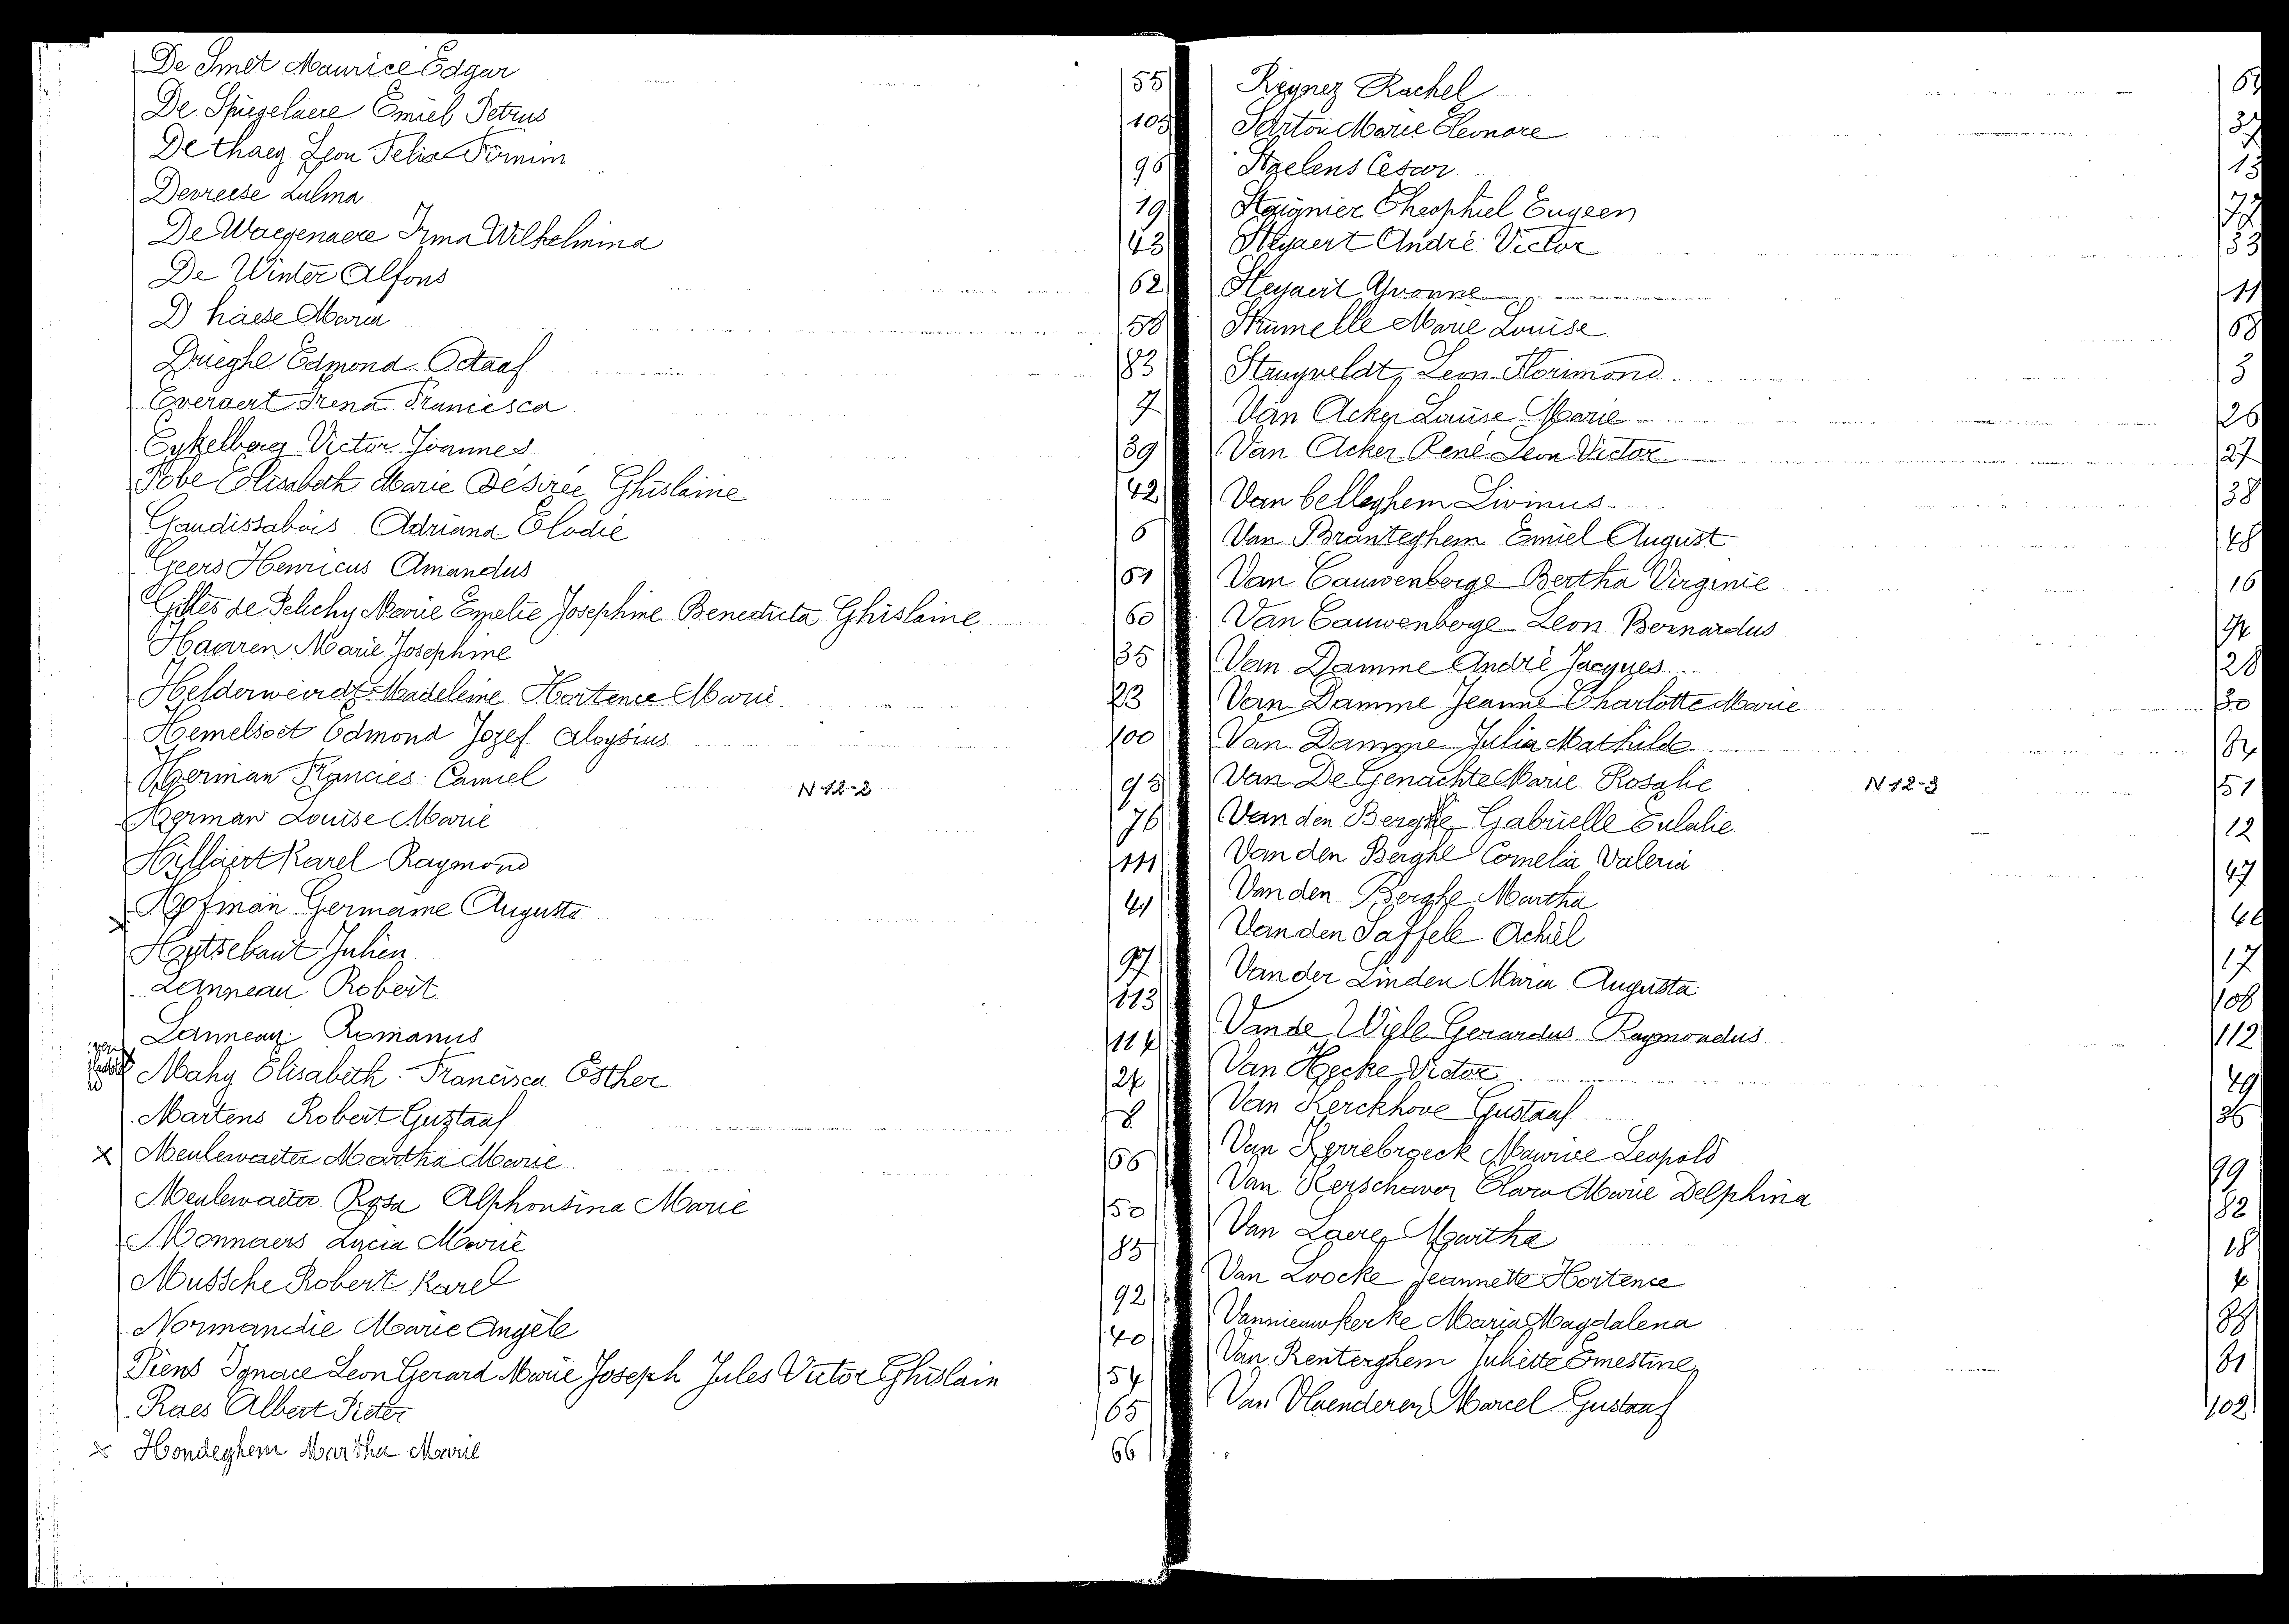 De Smet Maurice Edgar 55
De Spiegelaere Emiel Petrus 105
De thaey Leon Felix Firmin 96
Devreese Zulma 19
De Waegenaere Irma Wilhelmina 43
De Winter Alfons 62
D haese Maria 58
Drieghe Edmond Octaaf 83
Everaert Irena Francisca 7
Eykelberg Victor Joannes 39
Fobe Elisabeth Marie Désirée Ghislaine 42
Gaudissabois Adriana Elodie 6
Geers Henricus Amandus 61
Gilles de Pélichy Marie Emelie Josephine Benedicta Ghislaine 60
Haaren Marie Josephine 35
Helderweirdt Madeleine Hortence Marie 23
Hemelsoet Edmond Jozef Aloysius 100
Herman Francies Camiel 95
N 12-2
Herman Louise Marie 76
Hillaert Karel Raymond 111
Hofman Germaine Augusta 41
Hutsebaut Julien 97
Lanneau Robert 113
Lanneau Romanus 114
Mahy Elisabeth Francisca Esther 24
Martens Robert Gustaaf 8
x Meulewaeter Martha Marie 66
Meulewaeter Rosa Alphonsina Marie 50
Monnaers Lucia Marie 85
Mussche Robert Karel 92
Normandie Marie Angèle 40
Piens Ignace Leon Gerard Marie Joseph Jules Victor Ghislain 54
Raes Albert Pieter 65
x Hondeghem Martha Marie 66
Reynez Rachel
Sarton Marie Eleonore 37
Staelens Cesar 13
Staignier Theophiel Eugeen 77
Steyaert André Victor 53
Steyaert Yvonne 11
Strumelle Marie Louise 68
Struyveldt Leon Florimond 3
Van Acker Louise Marie 26
Van Acker René Leon Victor 27
Van belleghem Livinus 38
Van Branteghem Emiel August 48
Van Cauwenberge Bertha Virginie 16
Van Cauwenberge Leon Bernardus
Van Damme André Jacques 28
Van Damme Jeanne Charlotte Marie 30
Van Damme Julia Mathilde 84
Van De Genachte Marie Rosalie 51
N 12-3
Van den Berghe Gabrielle Eulalie 12
Van den Berghe Cornelia Valeria 47
Van den Berghe Martha
Van den Saffele Achiel 17
Van der Linden Maria Augusta 108
Vande Wiele Gerardus Raymondus 112
Van Hecke Victor 49
Van Kerckhove Gustaaf 36
Van Kerrebroeck Maurice Leopold 99
Van Kerschaver Clara Marie Delphina 82
Van Laere Martha 18
Van Loocke Jeannette Hortence
Vannieuwkerke Maria Magdalena
Van Renterghem Juliette Ernestine
Van Vlaenderen Marcel Gustaaf 102